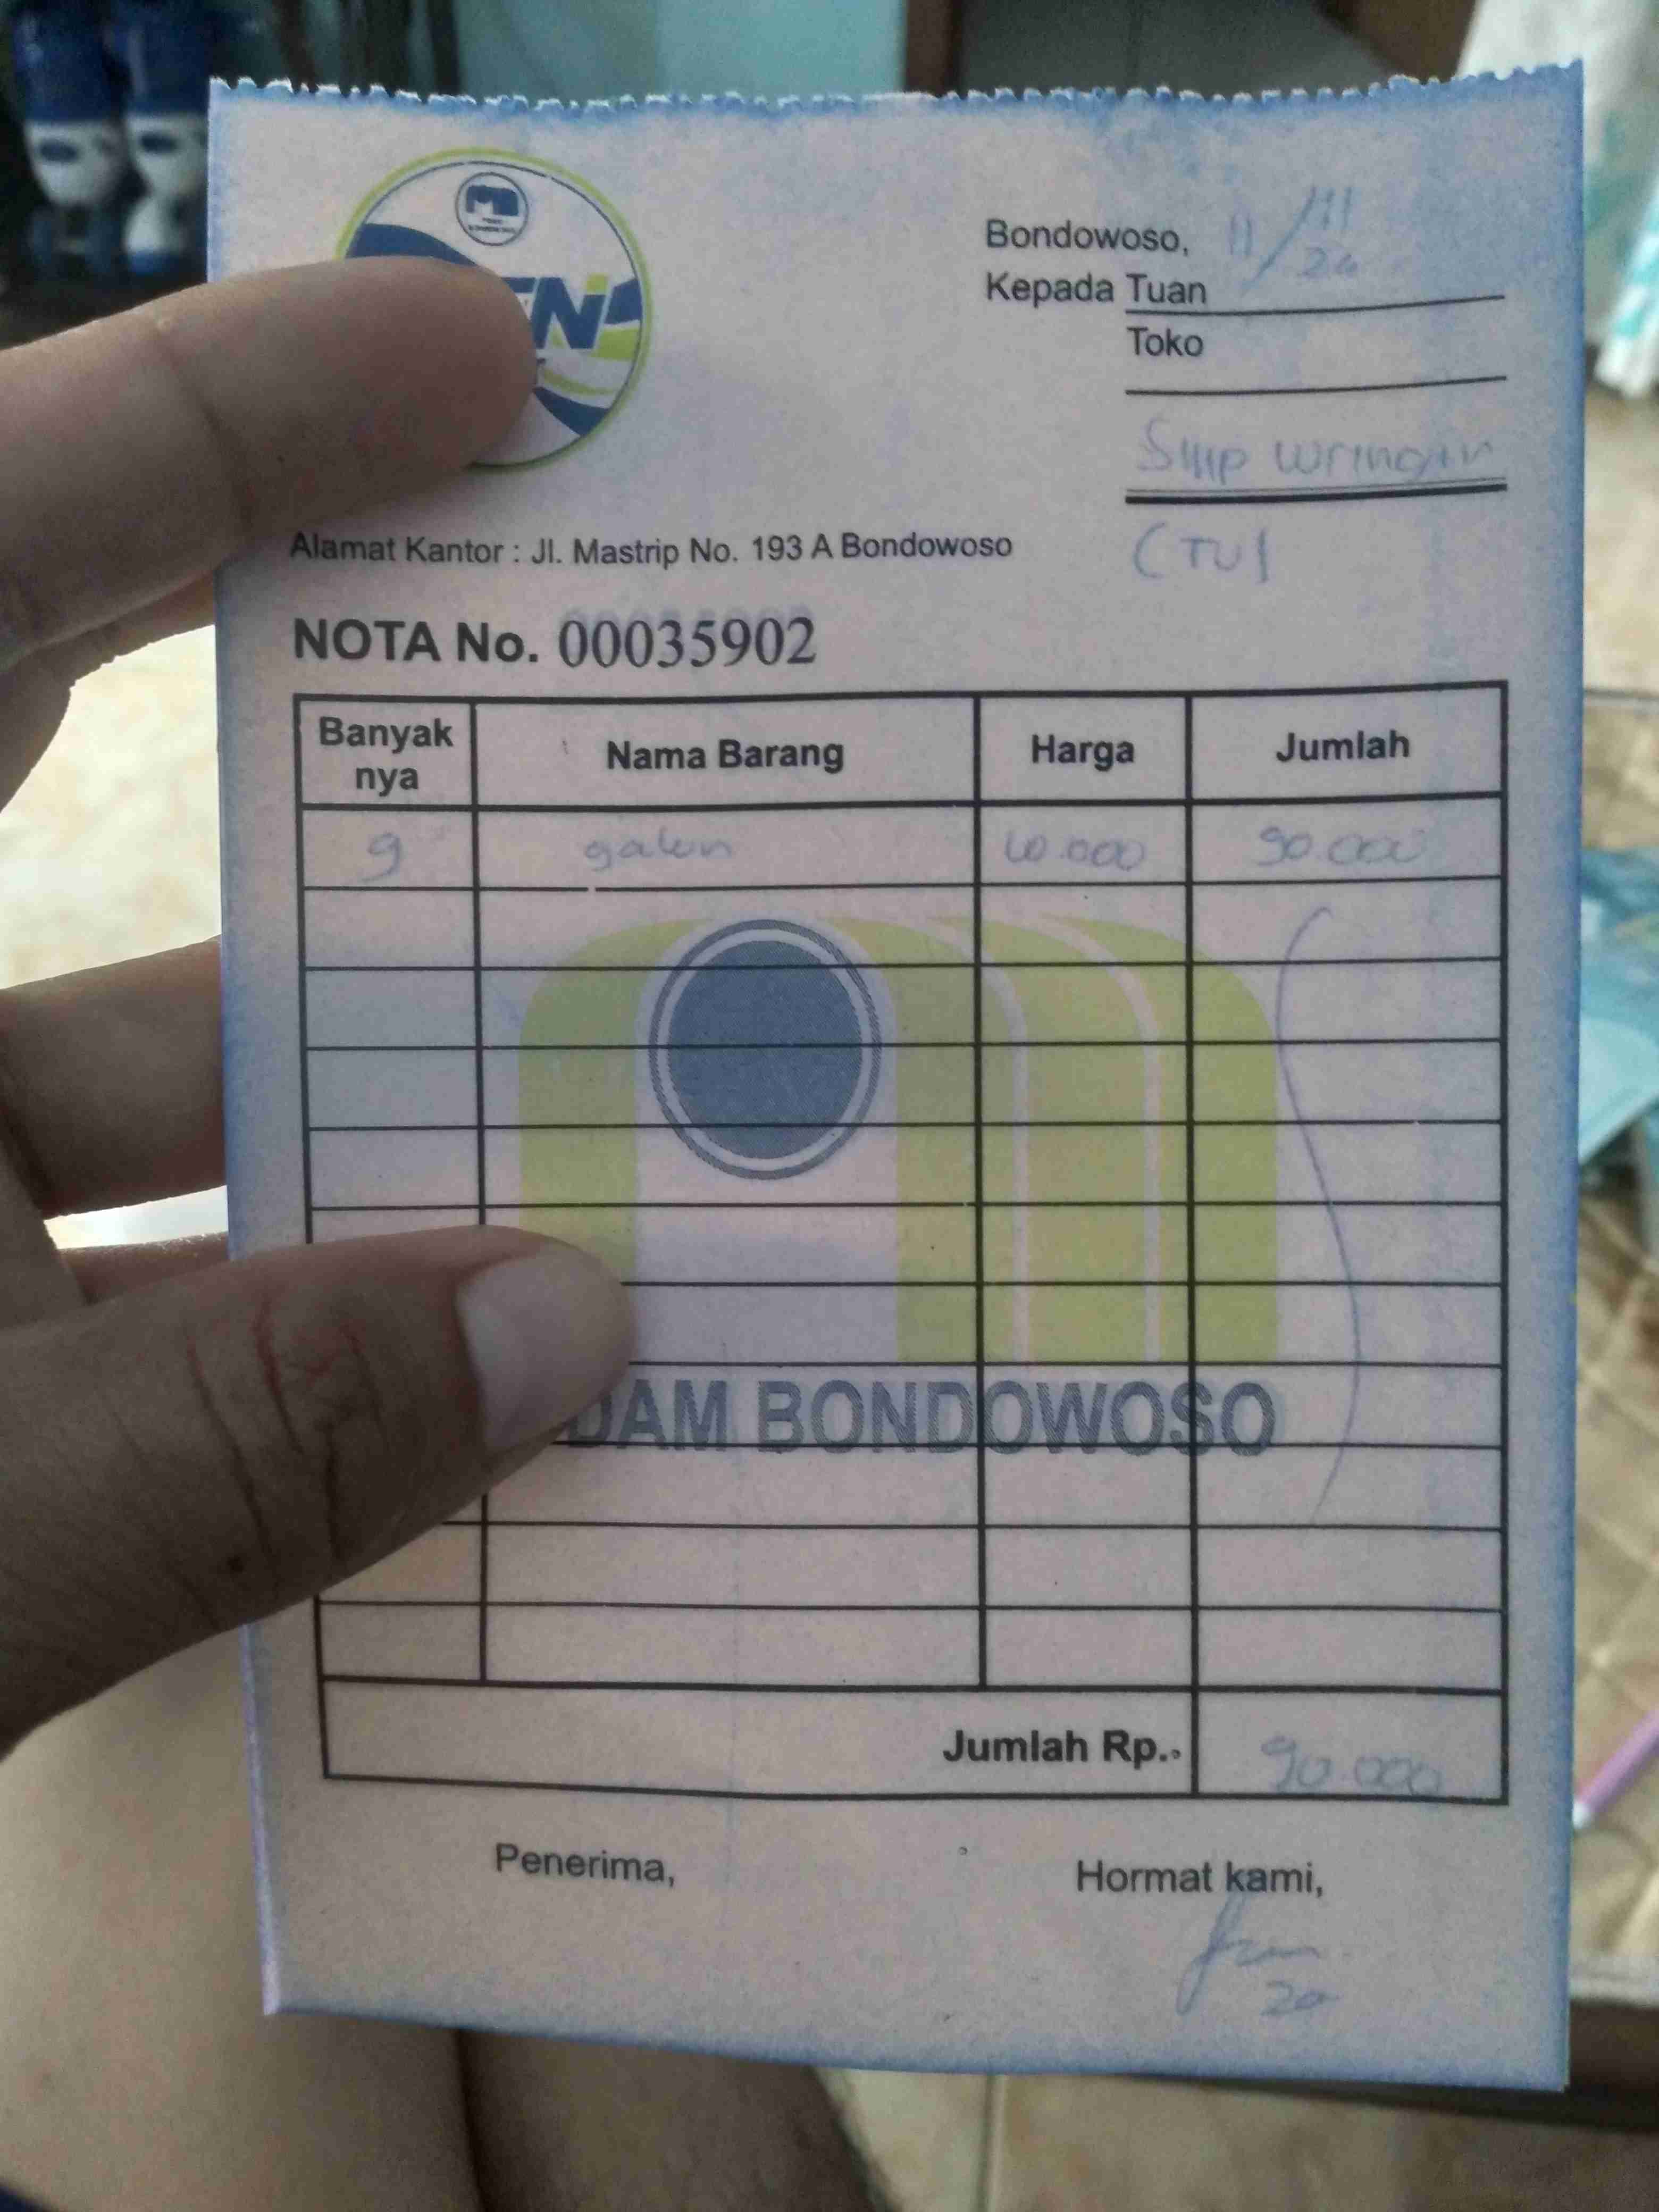 Bondowoso, 11/111
24
Kepada Tuan
Toko
wringin
(TU)
Alamat Kantor : Jl. Mastrip No. 193 A Bondowoso
NOTA No. 00035902
Banyak nya Nama Barang Harga Jumlah
9 galon 10.000 90.000
DAM BONDOWOSO
Jumlah Rp. 90.000
Penerima, Hormat kami,